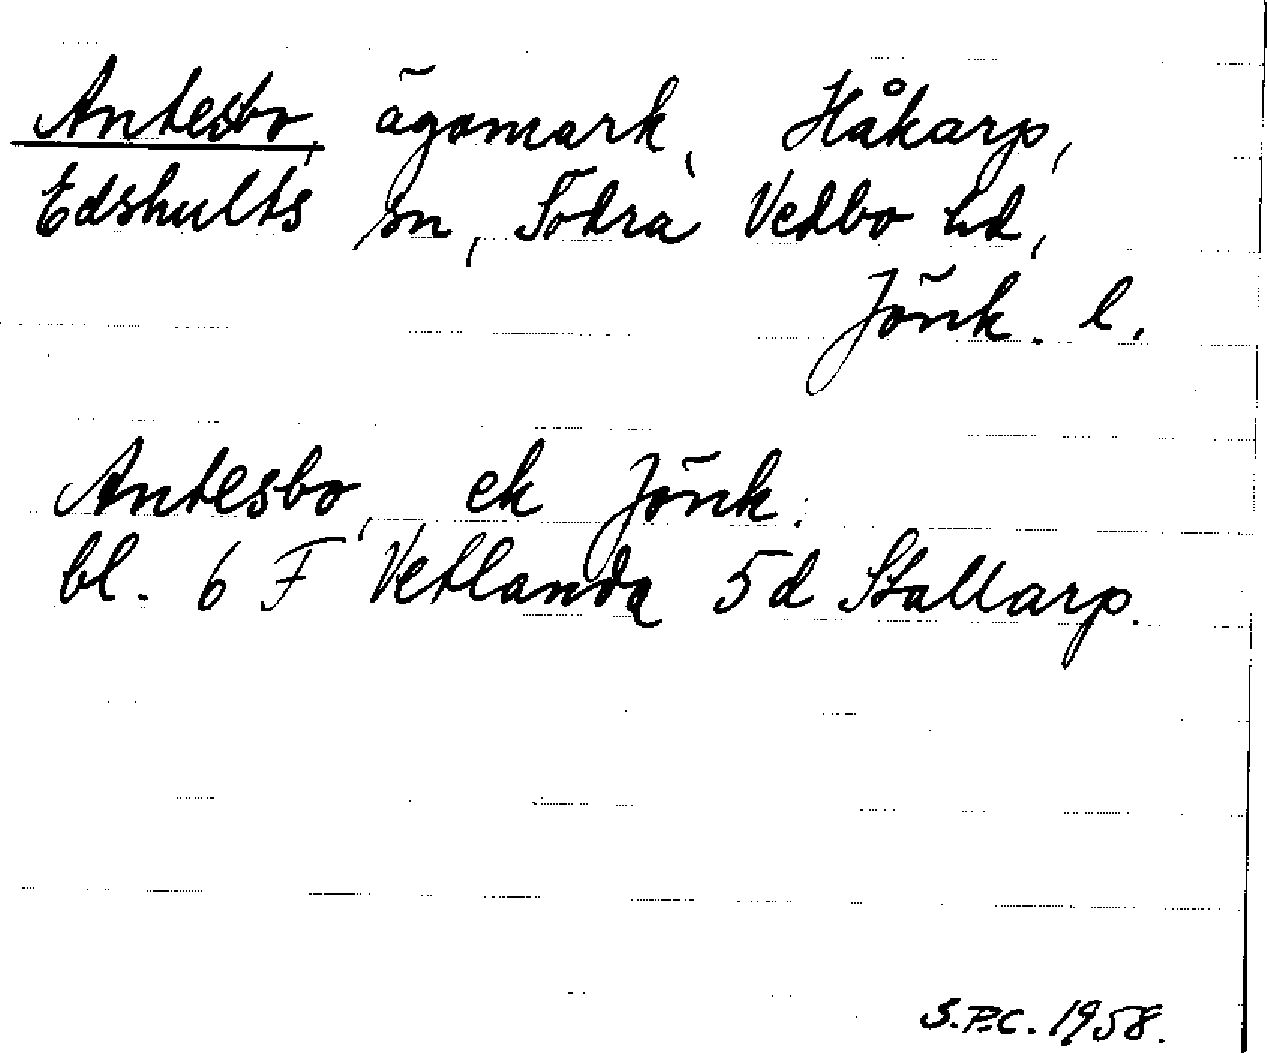 Antesbo, ägomark, Håkarp,
Edshults sn, Södra Vedbo hd,
Jönk. l.
Antesbo, ek Jönk.
bl. 6 F Vetlanda 5d Stallarp.
S.P.C. 1958.